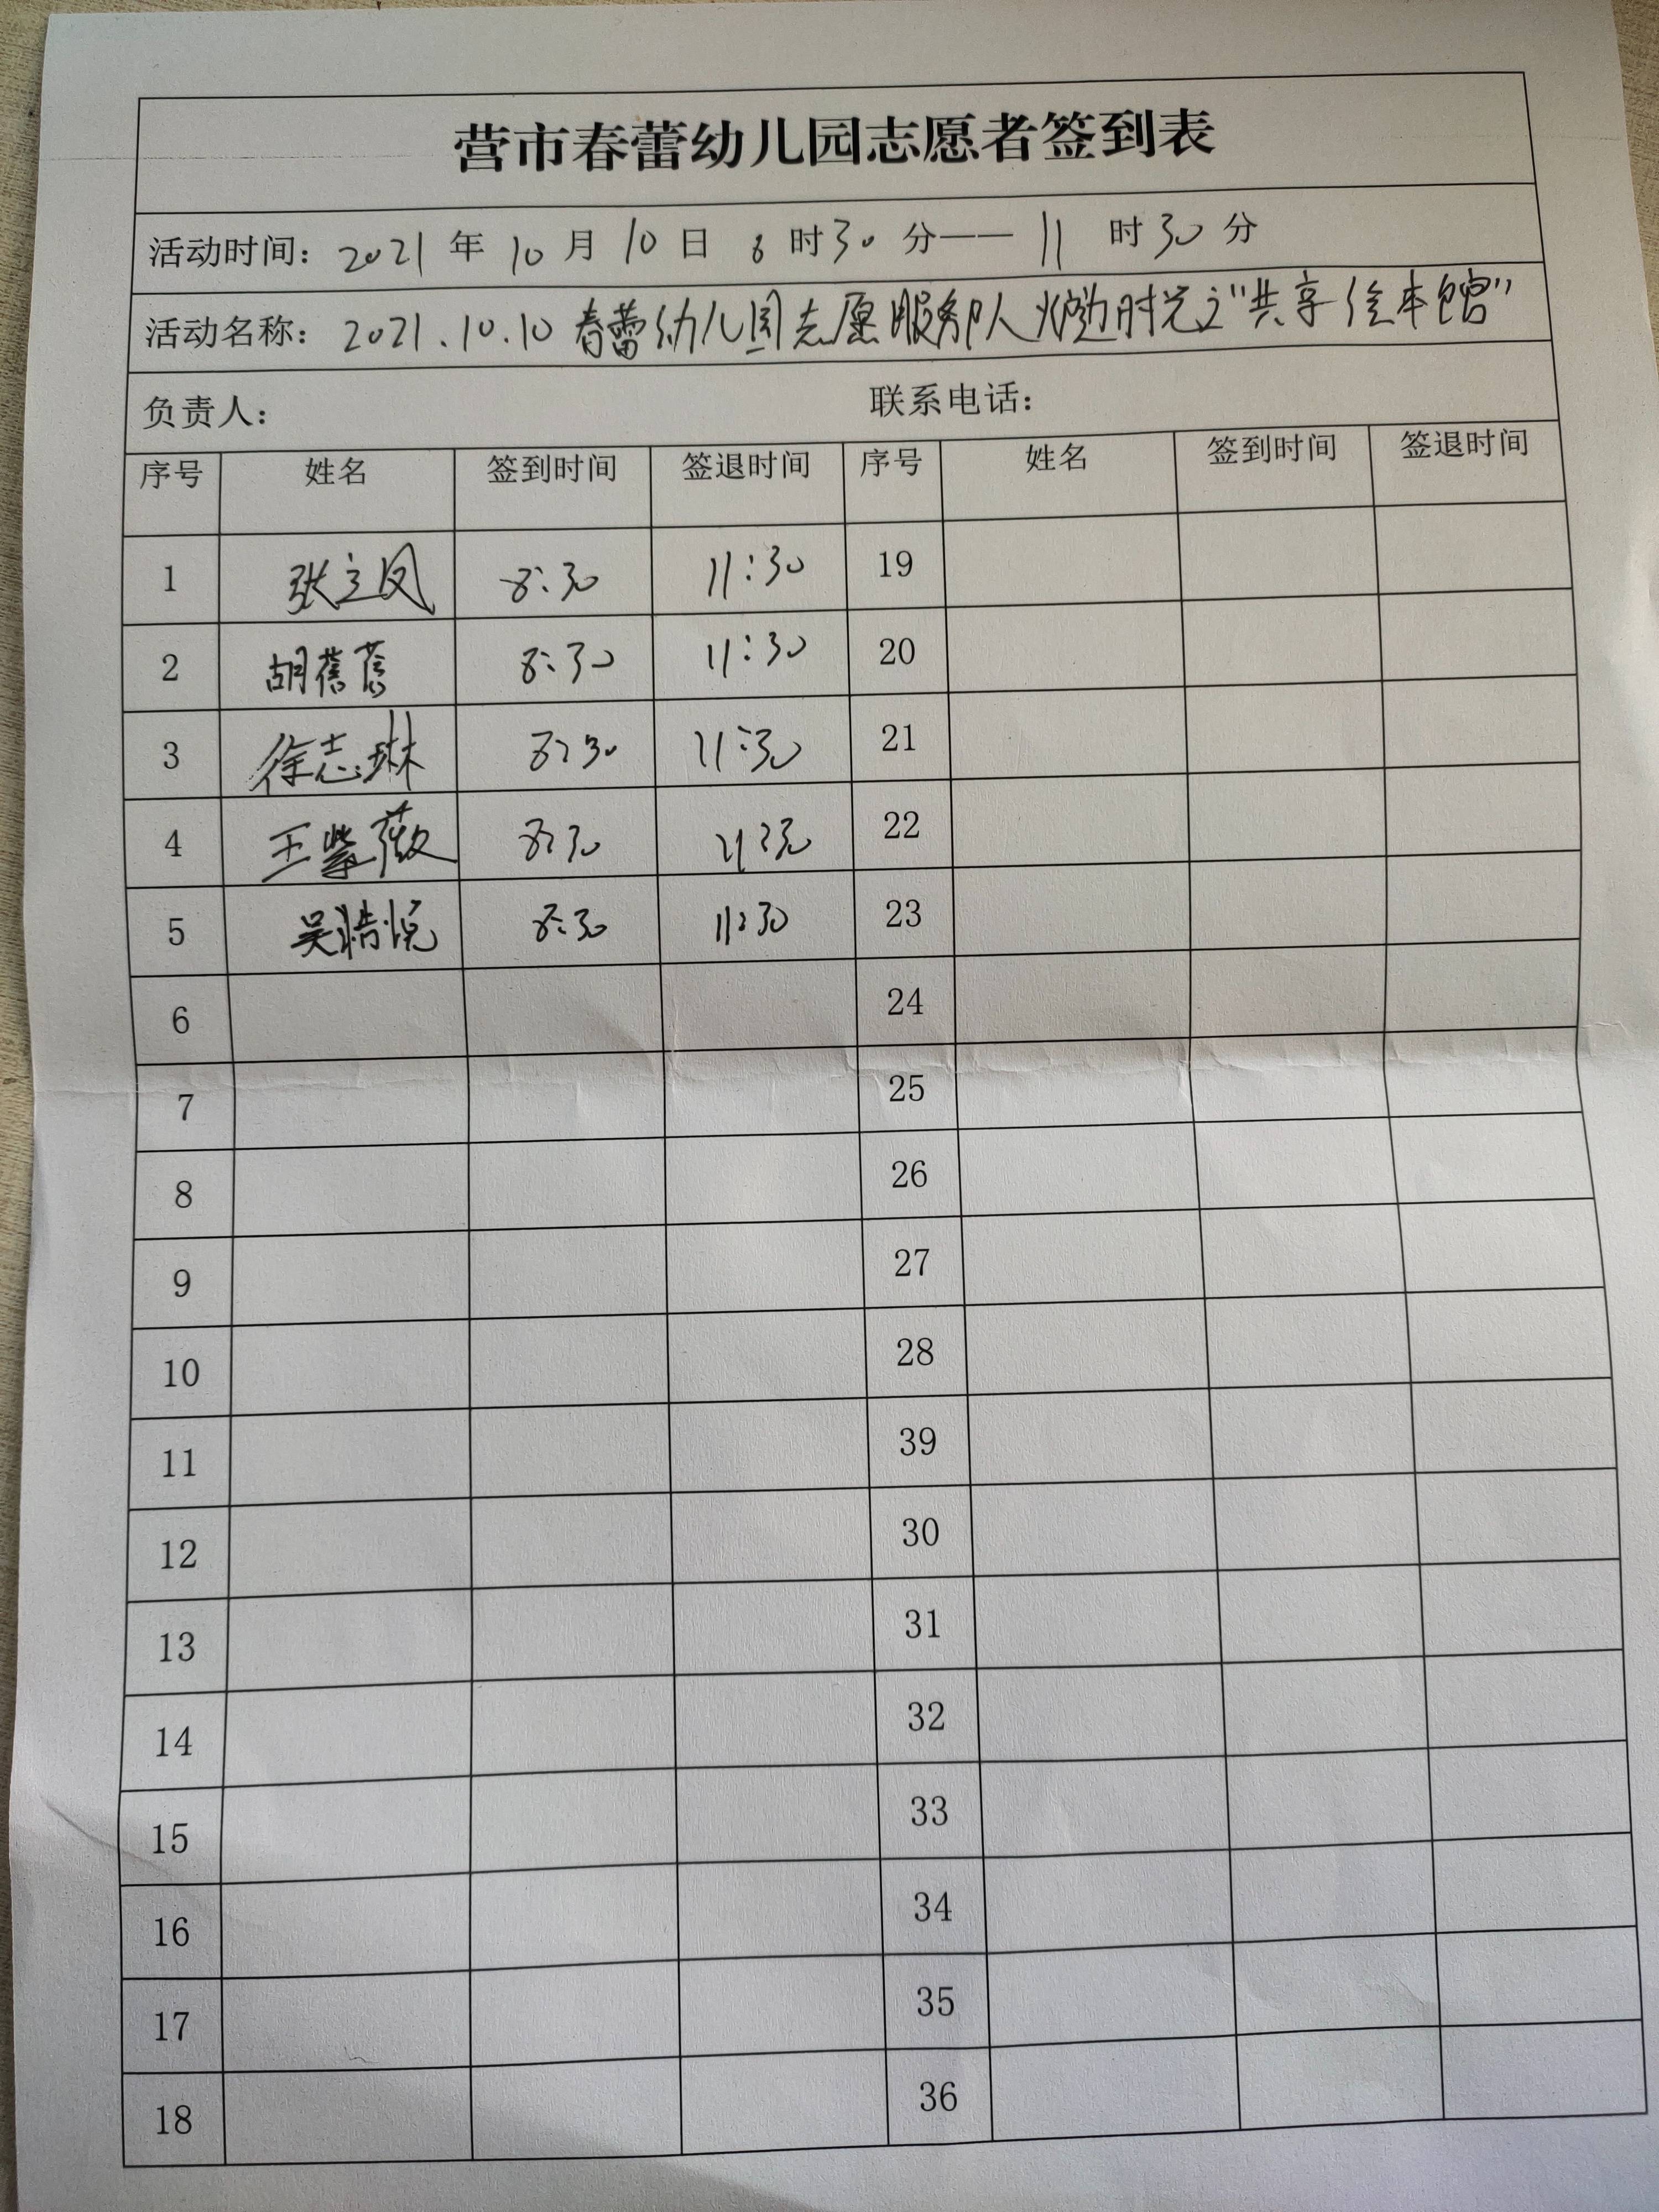 营市春蕾幼儿园志愿者签到表
活动时间: 2021 年 10 月 10 日 8 时 30 分—— 11 时 30 分
活动名称: 2021.10.10 春蕾幼儿园志愿服务 时光之"共享绘本馆"
负责人: 联系电话:
序号 姓名 签到时间 签退时间 序号 姓名 签到时间 签退时间
1 张立凤 8:30 11:30 19
2 胡蓓蓓 8:30 11:30 20
3 徐志琳 8:30 11:30 21
4 王紫薇 8:30 11:30 22
5 吴浩悦 8:30 11:30 23
6 24
7 25
8 26
9 27
10 28
11 39
12 30
13 31
14 32
15 33
16 34
17 35
18 36